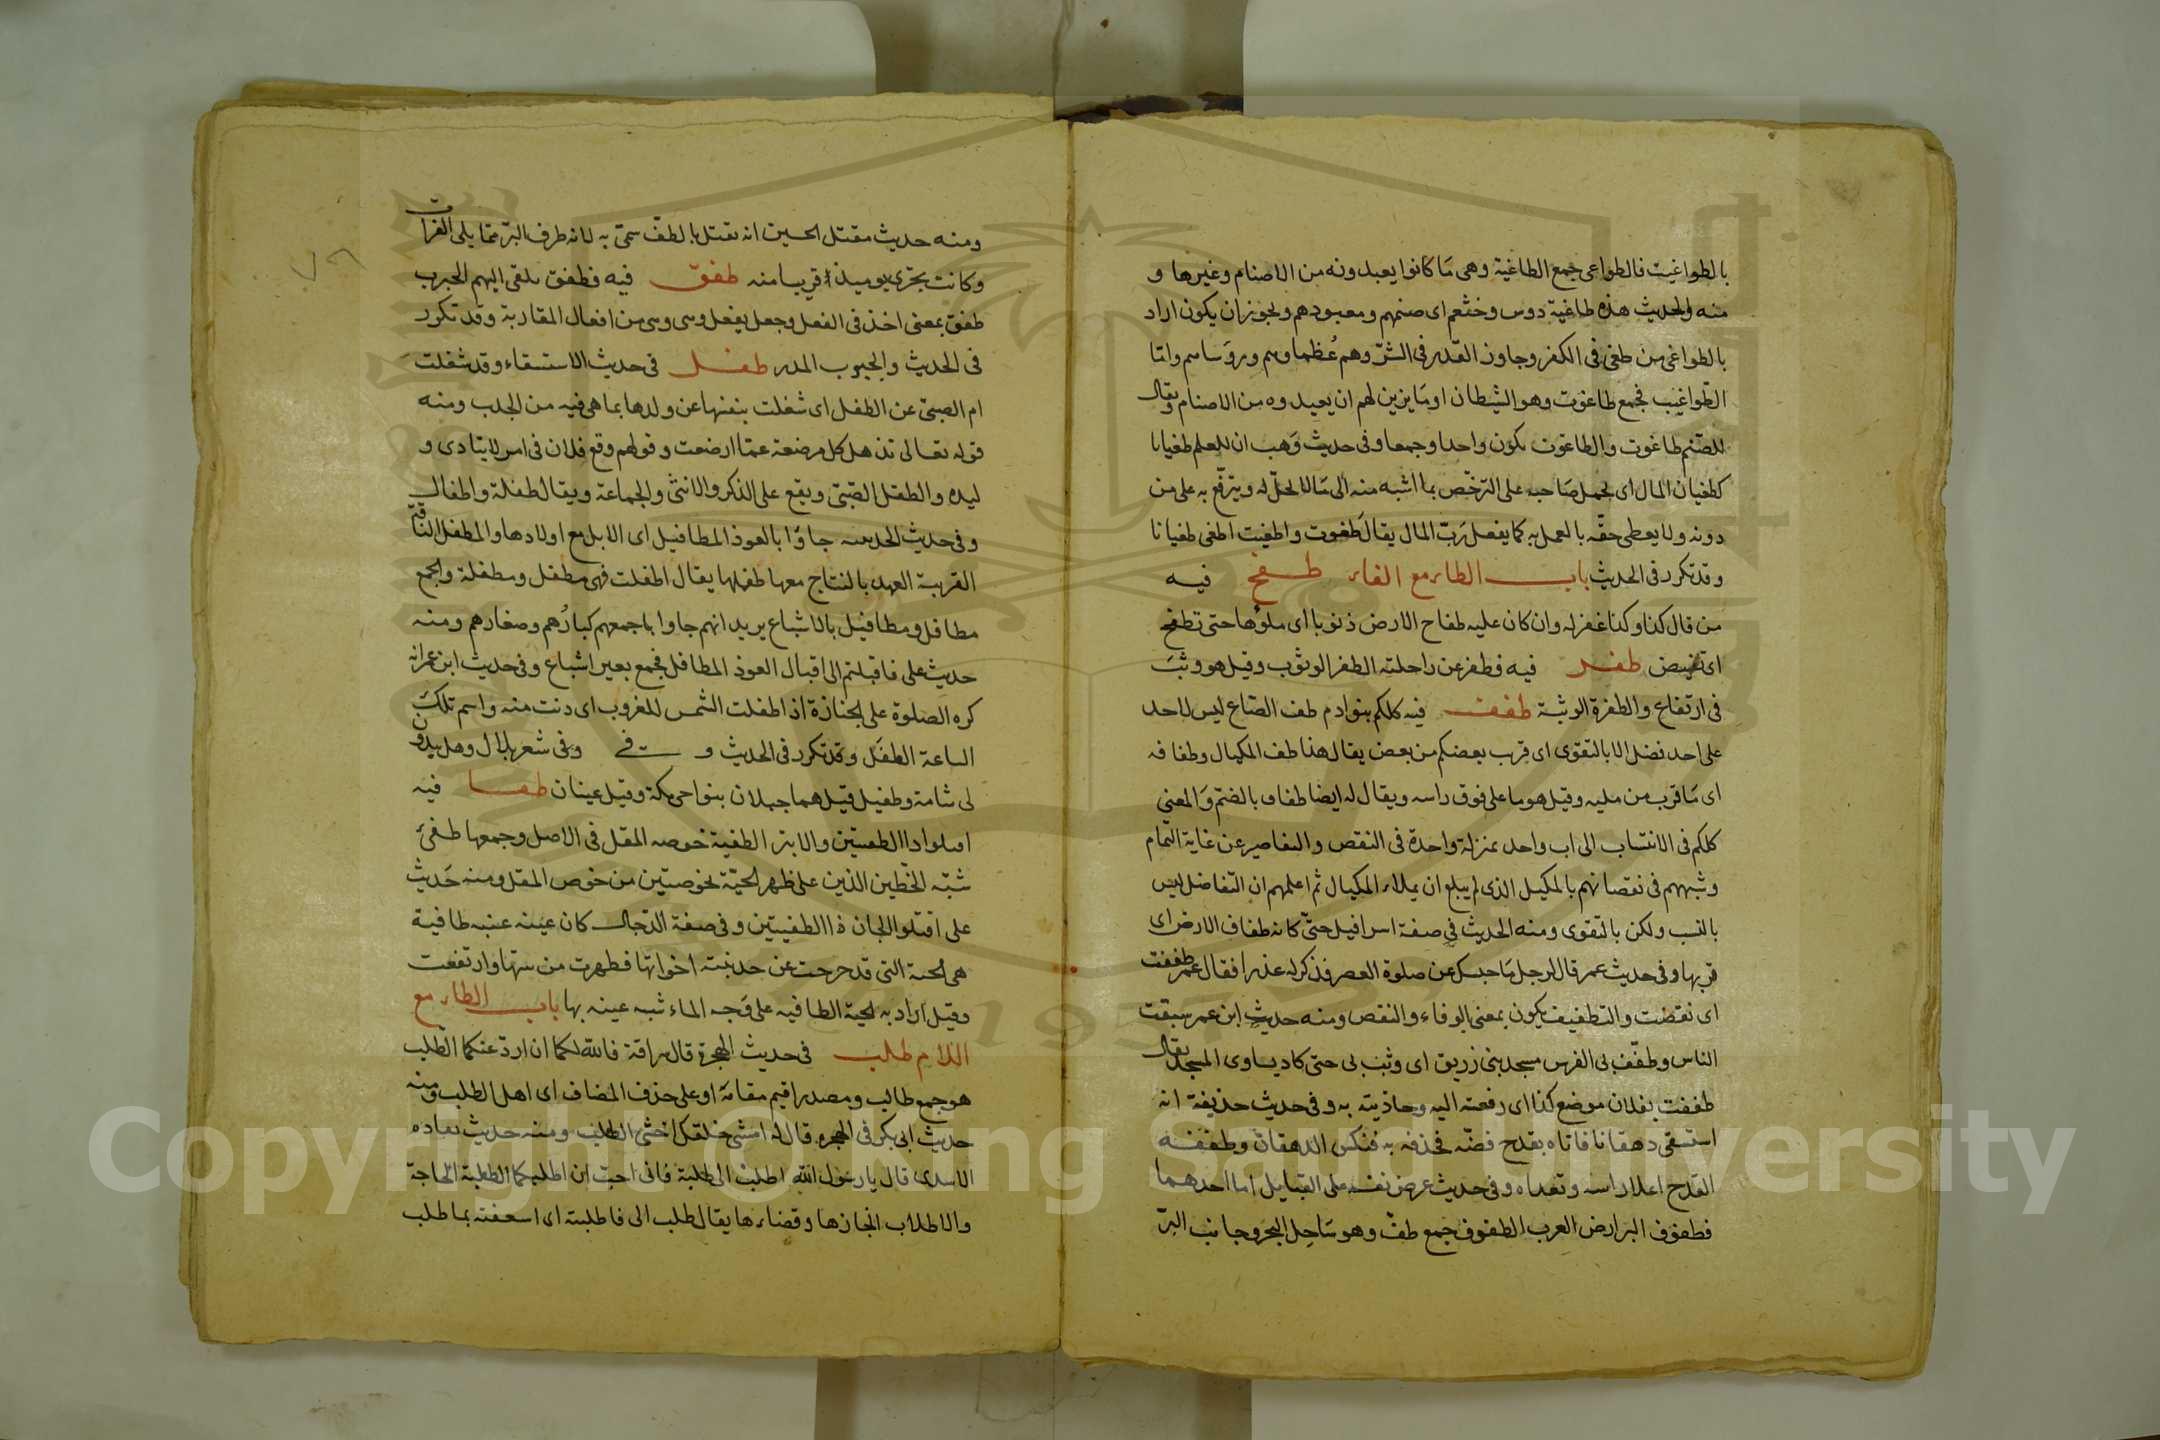 بالطواغيت فالطواغي جمع الطاغية وهى مَا كانوا يعبدونه من الاصنام وغيرها و
منه والحديث هذه طاغية دوس وخثعم اى صنمهم ومعبودهم ويجوز ان يكون اراد
بالطواغى من طغى فى الكفر وجاوز القدر فى الشرّ وهم عُظماوهم وروَساهم وامّا
الطّواغيت فجمع طاغوت وهو الشيطان او مَا يزين لهم ان يعبدوه من الاصنام ويقال
للصّنم طاغوت والطاغوت يكون واحدا وجمعا وفى حديث وَهب ان للعلم طغيانا
كطغيان المال اى يحمل صَاحبه على الترخّص بما اشبه منه الى مَا لا يحلّ له ويترفّع به على من
دونه ولا يعطى حقّه بالعمل به كما يفعل رَبّ المال يقال طَغوت واطغيت اطغى طغيانا
وقد تكرر فى الحديث باب الطاء مع الفاء طفح فيه
من قال كذا وكذا غفر له وان كان عليه طفاح الارض ذنوبا اى ملؤها حتى تطفح
اى تفيض طفر فيه فطفر عن راحلته الطفر الوثوب وقيل هو وثبَ
فى ارتفاع والطفرة الوثبة طفف فيه كلكم بنو ادم طف الصّاع ليس لاحد
على احد فضل الا بالتقوى اى قرب بعضكم من بعض يقال هذا طف المكيال وطفافه
اى مَا قرب من مليه وقيل هو ما على فوق راسه ويقال له ايضا طفاف بالضم وَالمعنى
كلكم فى الانتساب الى اب واحد بمنزلة واحدة فى النقص والتقاصر عن غاية التّمام
وشبههم فى نقصانهم بالمكيل الذى لم يبلغ ان يملاء المكيال ثم اعلمهم ان التّفاضل ليس
بالنسب ولكن بالتقوى ومنه الحديث في صفة اسرافيل حتّى كانه طفاف الارض اى
قربها وفى حديث عمر قال لرجل مَا حبسك عن صلوة العصر فذكر له عذرا فقال عمر طففت
اى نقضت والتطفيف يكون بمعنى الوفاء والنقص ومنه حديث ابن عمر سبقت
الناس وطفّف بى الفرس مسجد بنى زريق اى وثب بى حتى كاد يساوى المسجد يقال
طففت بفلان موضع كذا اى رفعته اليه وحاذيته به وفى حديث حذيفة انه
استسقى دهقانا فاتاه بقدح فضّة فحذفه به فنكس الدهقان وطففه
القدح اعلا راسه وتعداه وفى حديث عرض نفسه على القبايل اما احدهما
فطفوف البر ارض العرب الطفوف جمع طفّ وهو سَاحل البحر وجانب البرّ
ومنه حديث مقتل الحسين انه يقتل بالطف سمّى به لانه طرف البرّ ممّا يلى الفرات
وكانت تجرى يوميذ قريبا منه طفق فيه فطفق يلقى اليهم الجبوب
طفق بمعنى اخذ فى الفعل وجعل يفعل وسى وسى من افعال المقاربة وقد تكرر
فى الحديث والجبوب المدر طفل فى حديث الاستسقاء وقد شغلت
ام الصبىّ عن الطفل اى شغلت بنفسها عن ولدها بما هى فيه من الجدب ومنه
قوله تعالى تذهل كل مرضعة عمّا ارضعت وقولهم وقع فلان فى امر لا ينادى و
ليده والطفل الصّبىّ ويقع على الذكر والانثى والجماعة ويقال طفلة واطفال
وفى حديث الحديبيه جاوَا بالعوذ المطافيل اى الابل مع اولادها والمطفل النّاقة
القريبة العهد بالنتاج معها طفلها يقال اطفلت فهى مطفل ومطفلة والجمع
مطافل ومطافيل بالاشباع يريد انهم جاوا باجمعهم كبارُهم وصغارهم ومنه
حديث على فاقبلتم الى اقبال العوذ المطافل فجمع بغير اشباع وفى حديث ابن عمر انه
كره الصلوة على الجنازة اذا طفلت الشمس للغروب اى دنت منه واسم تلكَ
الساعة الطفَل وقد تكرر فى الحديث وفى شعر بلال وهل يبدون
لى شامة وطفيل قيل هما جبلان بنواحى مكة وقيل عينان طفا فيه
اقتلوا ذا الطفيتين والابتر الطفية خوصه المقل فى الاصل وجمعها طفى
شبّه الخطين الذين على ظهر الحيّة بخوصتين من خوص المقل ومنه حَديث
على اقتلوا الجان ذا الطفيتين وفى صفة الدّجال كان عينه عنبه طافية
هى الحبة التى قد خرجت عن حد نبتة اخواتها فظهرت من بينها وارتفعت
وقيل اراد به الحبّة الطافيه على وَجه الماء شبه عينه بها باب الطاء مع
اللام طلب فى حديث الهجرة قال سراقة فالله لكما ان اردّ عنكما الطلب
هو جمع طالب ومصدر اقيم مقامَه او على حذف المضاف اى اهل الطلب ومنه
حديث ابى بكر فى الهجره قال له امشى خلفك اخشى الطلب ومنه حديث نقاده
الاسدى قال يا رسُول الله اطلب الى طلبة فانى احب ان اطلبكها الطلبة الحاجة
والاطلاب انجازها وقضاءها يقال طلب الى فاطلبته اى اسعفته بما طلب
Copyright © King Saud University